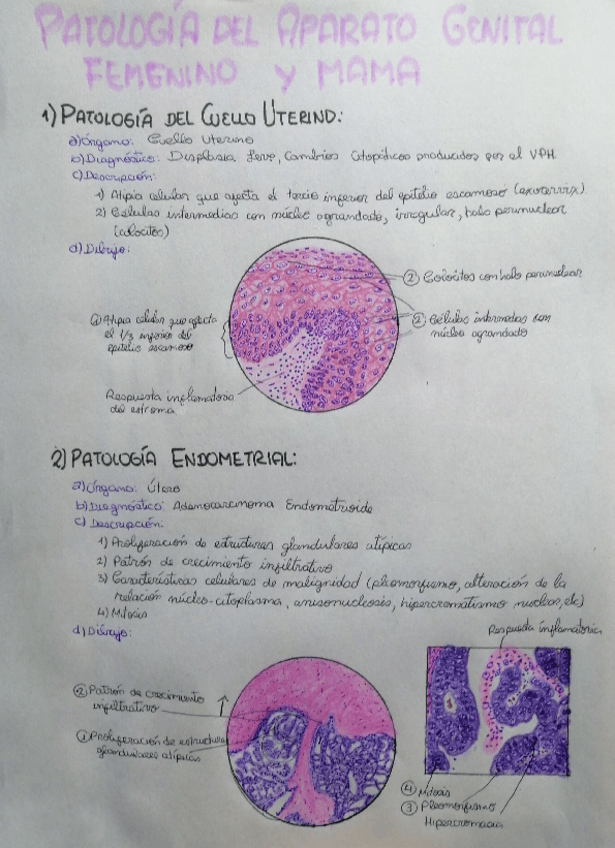 PATOLOGÍA DEL APARATO GENITAL
FEMENINO Y MAMA
1) PATOLOGÍA DEL CUELLO UTERINO:
a) Órgano: Cuello Uterino
b) Diagnóstico: Displasia leve, Cambios Citopáticos producidos por el VPH
c) Descripción:
1) Atipia celular que afecta el tercio inferior del epitelio escamoso (exocervix).
2) Células intermedias con núcleo agrandado, irregular, halo perinuclear
(coilocitos)
d) Dibujo:
② Coilocitos con halo perinuclear
② Células intermedias con
núcleo agrandado
① Atipia celular que afecta
el 1/3 inferior del
epitelio escamoso
Respuesta inflamatoria
del estroma
2) PATOLOGÍA ENDOMETRIAL:
a) Órgano: Útero
b) Diagnóstico: Adenocarcinoma Endometrioide
c) Descripción:
1) Proliferación de estructuras glandulares atípicas
2) Patrón de crecimiento infiltrativo
3) Características celulares de malignidad (pleomorfismo, alteración de la
relación núcleo-citoplasma, anisonucleosis, hipercromatismo nuclear, etc)
4) Mitosis
d) Dibujo:
Respuesta inflamatoria
② Patrón de crecimiento
infiltrativo
① Proliferación de estructuras
glandulares atípicas
④ Mitosis
③ Pleomorfismo
Hipercromasia